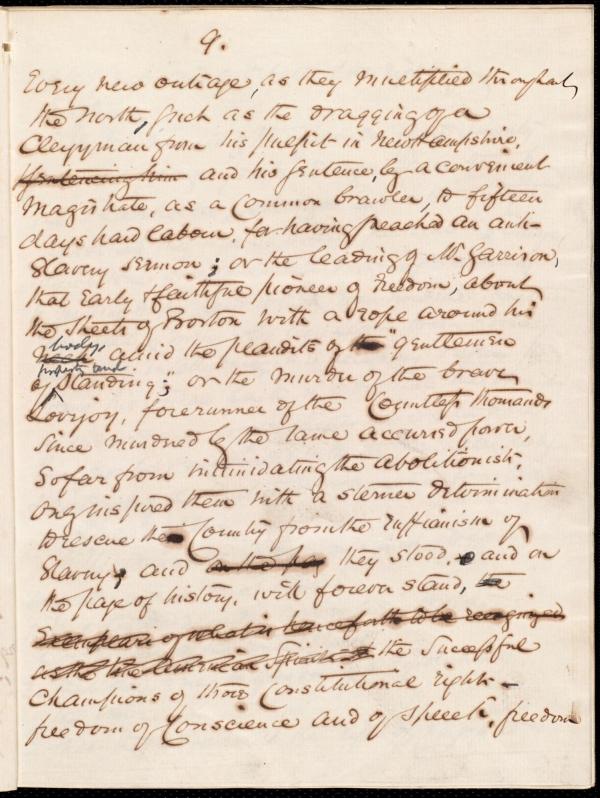 9.
Every new outrage, as they multiplied throughout
the North, such as the dragging of a
Clergyman from his pulpit in New Hampshire,
sentencing him and his sentence, by a convenient
Magistrate, as a Common brawler, to fifteen
days hard labour, for having preached an anti-
Slavery sermon; or the leading of Mr Garrison,
that Early & faithful pioneer of Freedom, about
the Streets of Boston with a rope around his
body,
neck amid the plaudits of the "gentlemen
property and
of standing"; or the murder of the brave
Lovejoy, forerunner of the Countless thousands
since murdered by the same accursed power,
so far from intimidating the Abolitionists,
only inspired them with a sterner determination
to rescue the Country from the ruffianism of
Slavery; and on the pag they stood, and on
the page of history, will forever stand, the
Exemplars of what is henceforth to be recognized
as the true American Spirit the Successful
Champions of those Constitutional rights—
freedom of Conscience and of speech, freedom